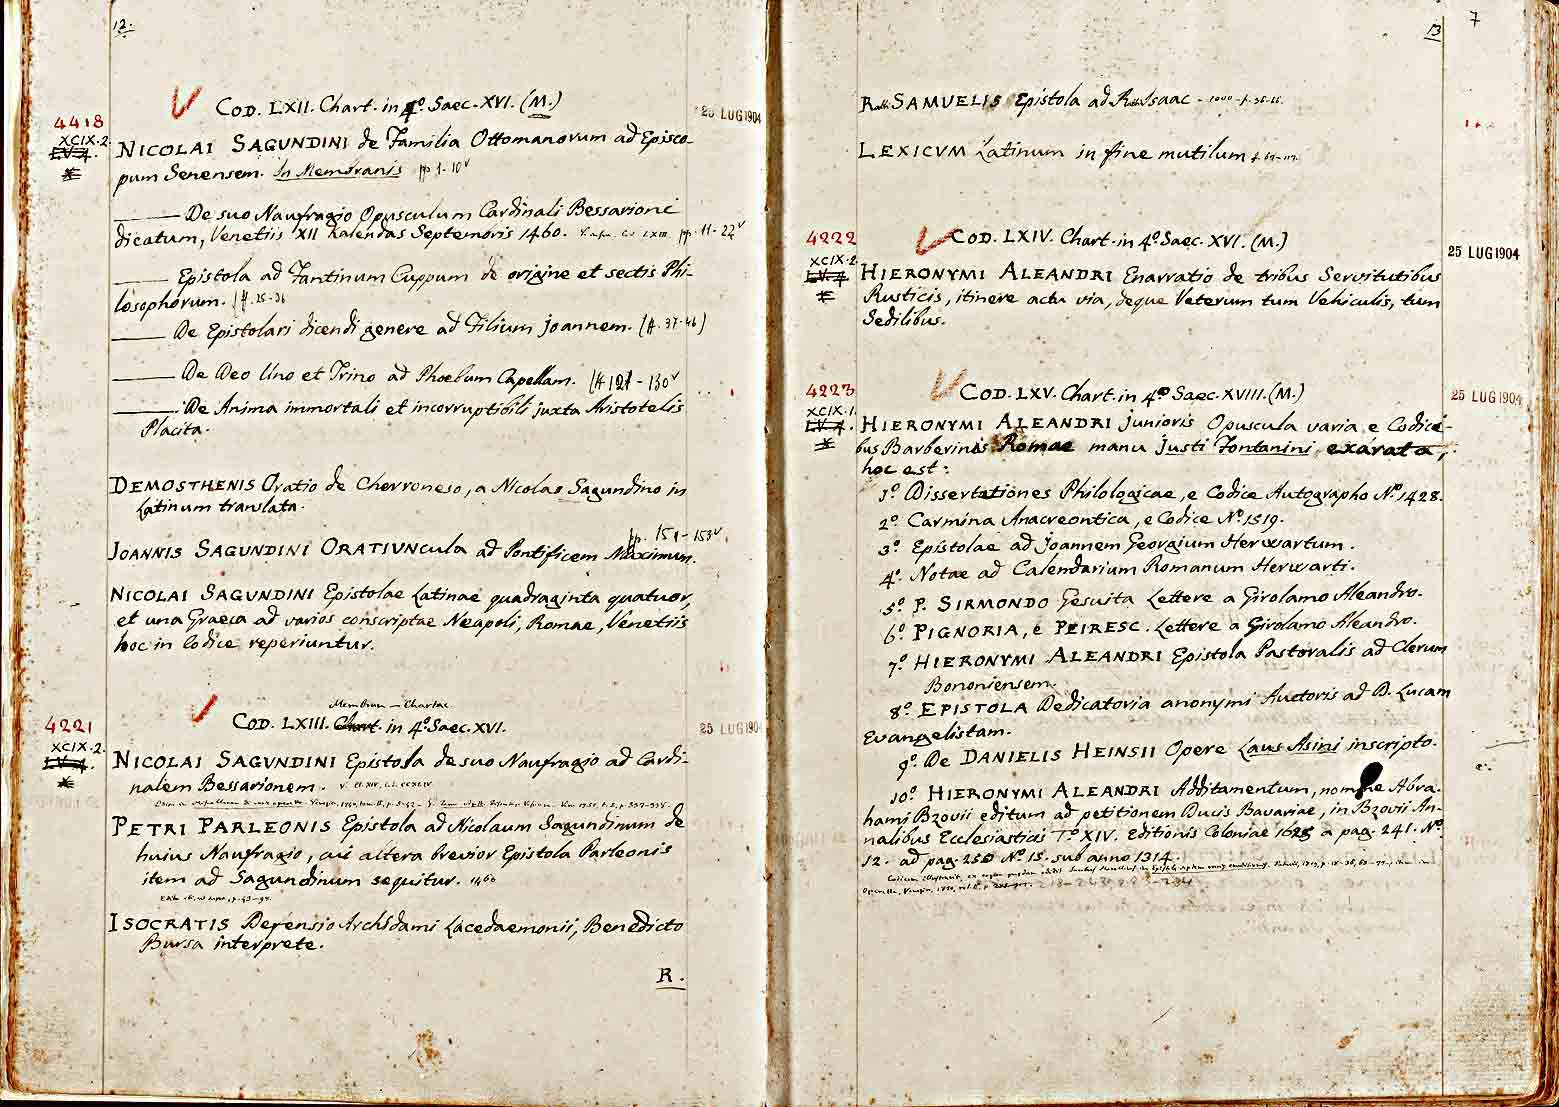 12.
4418
XCIX.2.
COD. LXII. Chart. in 4.º Saec. XVI. (M.)
25 LUG 1904
NICOLAI SAGUNDINI de Familia Ottomanorum ad Episco-
pum Senensem. In Membranis pp 1-10v
De suo Naufragio Opusculum Cardinali Bessarioni
dicatum, Venetiis XII Kalendas Septembris 1460. pp. 11-22v
Epistola ad Fantinum Cuppum de origine et sectis Phi-
losophorum. (ff. 25-36
De Epistolari dicendi genere ad Filium Joannem. (ff. 37-46)
De Deo Uno et Trino ad Phoebum Capellam. (ff 121-130v
De Anima immortali et incorruptibili juxta Aristotelis
Placita.
DEMOSTHENIS Oratio de Cherroneso, a Nicolao Sagundino in
Latinum translata.
pp. 151-153v.
JOANNIS SAGUNDINI ORATIUNcula ad Pontificem Maximum.
NICOLAI SAGUNDINI Epistolae Latinae quadraginta quatuor,
et una Graeca ad varios conscriptae Neapoli, Romae, Venetiis
hoc in Codice reperiuntur.
4221
XCIX.2.
Membran — Chartac
COD. LXIII. Chart. in 4.º Saec. XVI.
25 LUG 1904
NICOLAI SAGUNDINI Epistola de suo Naufragio ad Cardi-
nalem Bessarionem.
PETRI PARLEONIS Epistola ad Nicolaum Sagundinum de
huius Naufragio, cui altera brevior Epistola Parleonis
item ad Sagundinum sequitur. 1460
ISOCRATIS Defensio Archidami Lacedaemonii, Benedicto
Bursa interprete.
R.
13
7
SAMUELIS Epistola ad Isaac
LEXICVM Latinum in fine mutilum
4222
XCIX.2
COD. LXIV. Chart. in 4.º Saec. XVI. (M.)
25 LUG 1904
HIERONYMI ALEANDRI Enarratio de tribus Servitutibus
Rusticis, itinere actu via, deque Veterum tum Vehiculis, tum
Sedilibus.
4223
XCIX.1.
COD. LXV. Chart. in 4.º Saec. XVIII. (M.)
25 LUG 1904
HIERONYMI ALEANDRI junioris Opuscula varia e Codici-
bus Barberinis Romae manu Justi Fontanini exarata,
hoc est:
1º Dissertationes Philologicae, e Codice Autographo Nº 1428.
2º Carmina Anacreontica, e Codice Nº 1519.
3º Epistolae ad Joannem Georgium Herwartum.
4º Notae ad Calendarium Romanum Herwarti.
5º P. SIRMONDO Gesuita Lettere a Girolamo Aleandro.
6º PIGNORIA, e PEIRESC. Lettere a Girolamo Aleandro.
7º HIERONYMI ALEANDRI Epistola Pastoralis ad Clerum
Bononiensem.
8º EPISTOLA Dedicatoria anonymi Auctoris ad D. Lucam
Evangelistam.
9º De DANIELIS HEINSII Opere Laus Asini inscripto.
10º HIERONYMI ALEANDRI Additamentum, nomine Abra-
hami Bzovii editum ad petitionem Ducis Bavariae, in Bzovii An-
nalibus Ecclesiasticis Tº XIV. Editionis Coloniae 1625 a pag. 241. Nº
12. ad pag. 255 Nº 15. sub anno 1314.